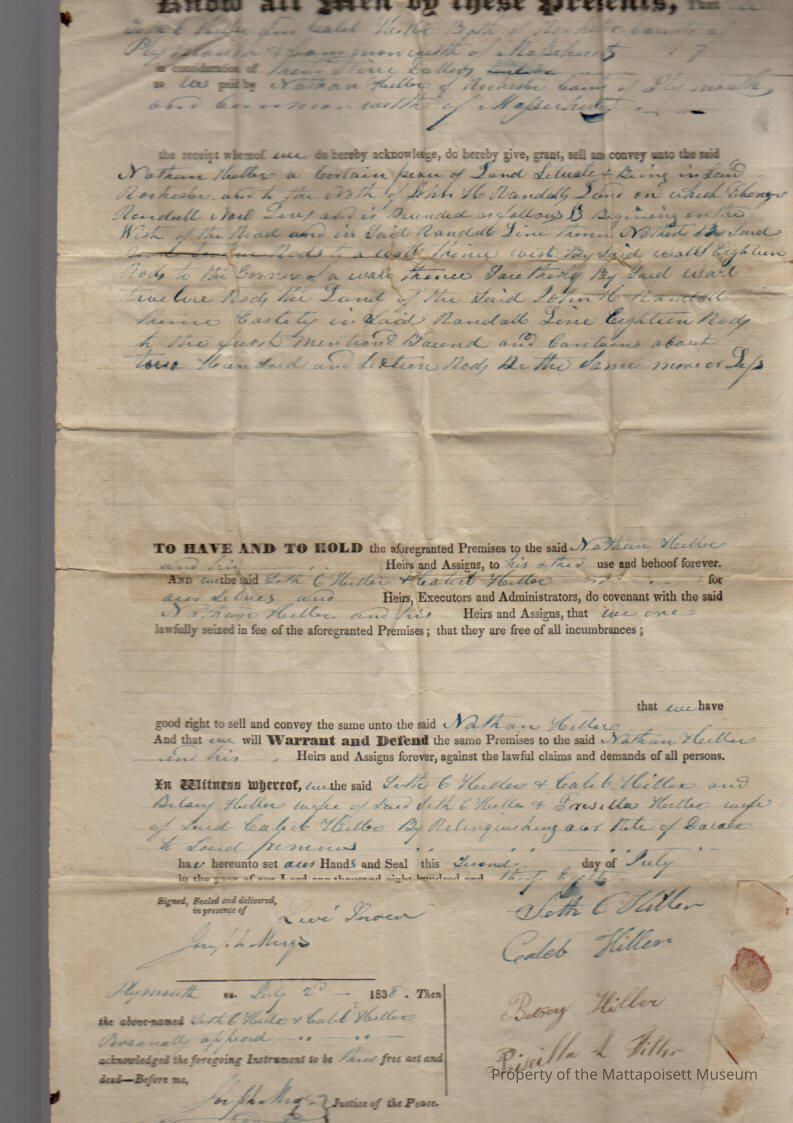 Know all Men by these Presents, That we
Seth C Hiller and Caleb Hiller Both of Rochester County of
Plymouth & Commonwealth of Massachusetts
in consideration of Nine Dollars
to us paid by Nathan Hiller of Rochester County of Plymouth
and Commonwelth of Massachusetts
the receipt whereof we do hereby acknowledge, do hereby give, grant, sell an convey unto the said
Nathan Hiller a Certain peace of Land Situate & Being in Said
Rochester and to the North of John H Randalls Land on which Ebenezer
Randall Now Lives and is Bounded as follows Begining on the
West of the Road and in Said Randall Line thence
Rods to a wall thence west By Said walls Eighteen
Rods to the Corner of a wall thence By Said wall
twelve Rods the Land of the Said John H Randall
thence in Said Randall Line Eighteen Rods
to the first Mentiond Bound and Contains about
two Hundred and Sixteen Rods Be the Same more or Less
TO HAVE AND TO HOLD the aforegranted Premises to the said Nathan Hiller
and his Heirs and Assigns, to his & their use and behoof forever.
AND we the said Seth C Hiller & Caleb Hiller for
our Selves and Heirs, Executors and Administrators, do covenant with the said
Nathan Hiller and his Heirs and Assigns, that we are
lawfully seized in fee of the aforegranted Premises; that they are free of all incumbrances;
that we have
good right to sell and convey the same unto the said Nathan Hiller
And that we will Warrant and Defend the same Premises to the said Nathan Hiller
and his Heirs and Assigns forever, against the lawful claims and demands of all persons.
In Witness whereof, we the said Seth C Hiller & Caleb Hiller and
Betsey Hiller wife of Said Seth C Hiller & Hiller wife
of Said Caleb Hiller By Relinquishing our Rite of
to Said
hav hereunto set our Hands and Seal this Second day of July
in the year of our Lord one thousand eight hundred and thirty Eight
Signed, Sealed and delivered,
in presence of
Levi Snow
Joseph Meigs
Seth C Hiller
Caleb Hiller
Betsey Hiller
Priscilla L Hiller
Plymouth ss. July 2d 1838. Then
the above-named Seth C Hiller & Caleb Hiller
Personally apeard
acknowledged the foregoing Instrument to be their free act and
deed—Before me,
Joseph Meigs Justice of the Peace.
Property of the Mattapoisett Museum